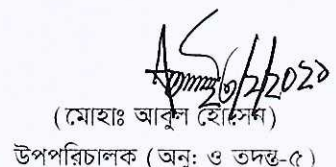 ২৬/২/২০২১
(মোহাঃ আবুল হোসেন)
উপপরিচালক (অনু: ও তদন্ত-৫)